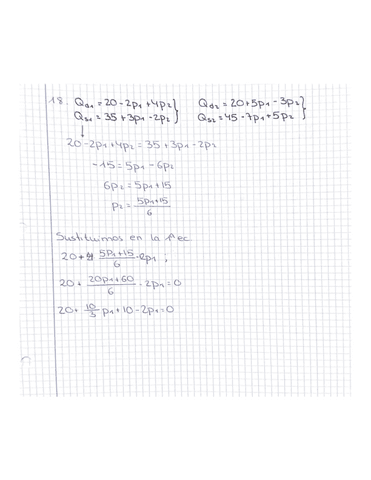 18. Qd1 = 20 - 2p1 + 4p2 } Qd2 = 20 + 5p1 - 3p2 }
Qs1 = 35 + 3p1 - 2p2 } Qs2 = 45 - 7p1 + 5p2 }
↓
20 - 2p1 + 4p2 = 35 + 3p1 - 2p2
-15 = 5p1 - 6p2
6p2 = 5p1 + 15
p2 = (5p1 + 15)/6
Sustituimos en la 1ª ec
20 + 4 (5p1 + 15)/6 - 2p1 ;
20 + (20p1 + 60)/6 - 2p1 = 0
20 + 10/3 p1 + 10 - 2p1 = 0